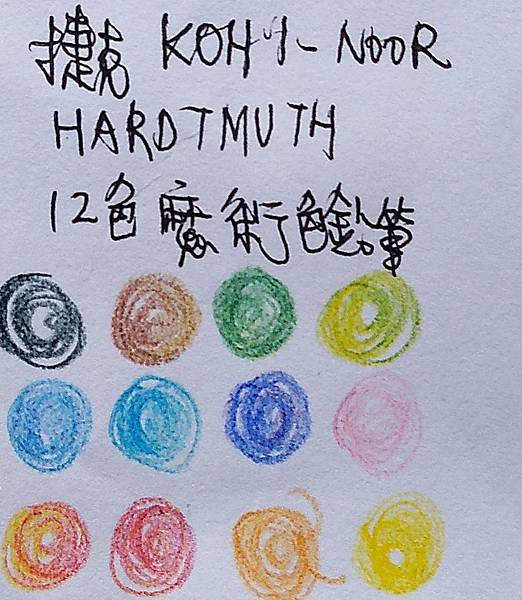 捷克 KOH-I-NOOR
HARDTMUTH
12色魔術色鉛筆